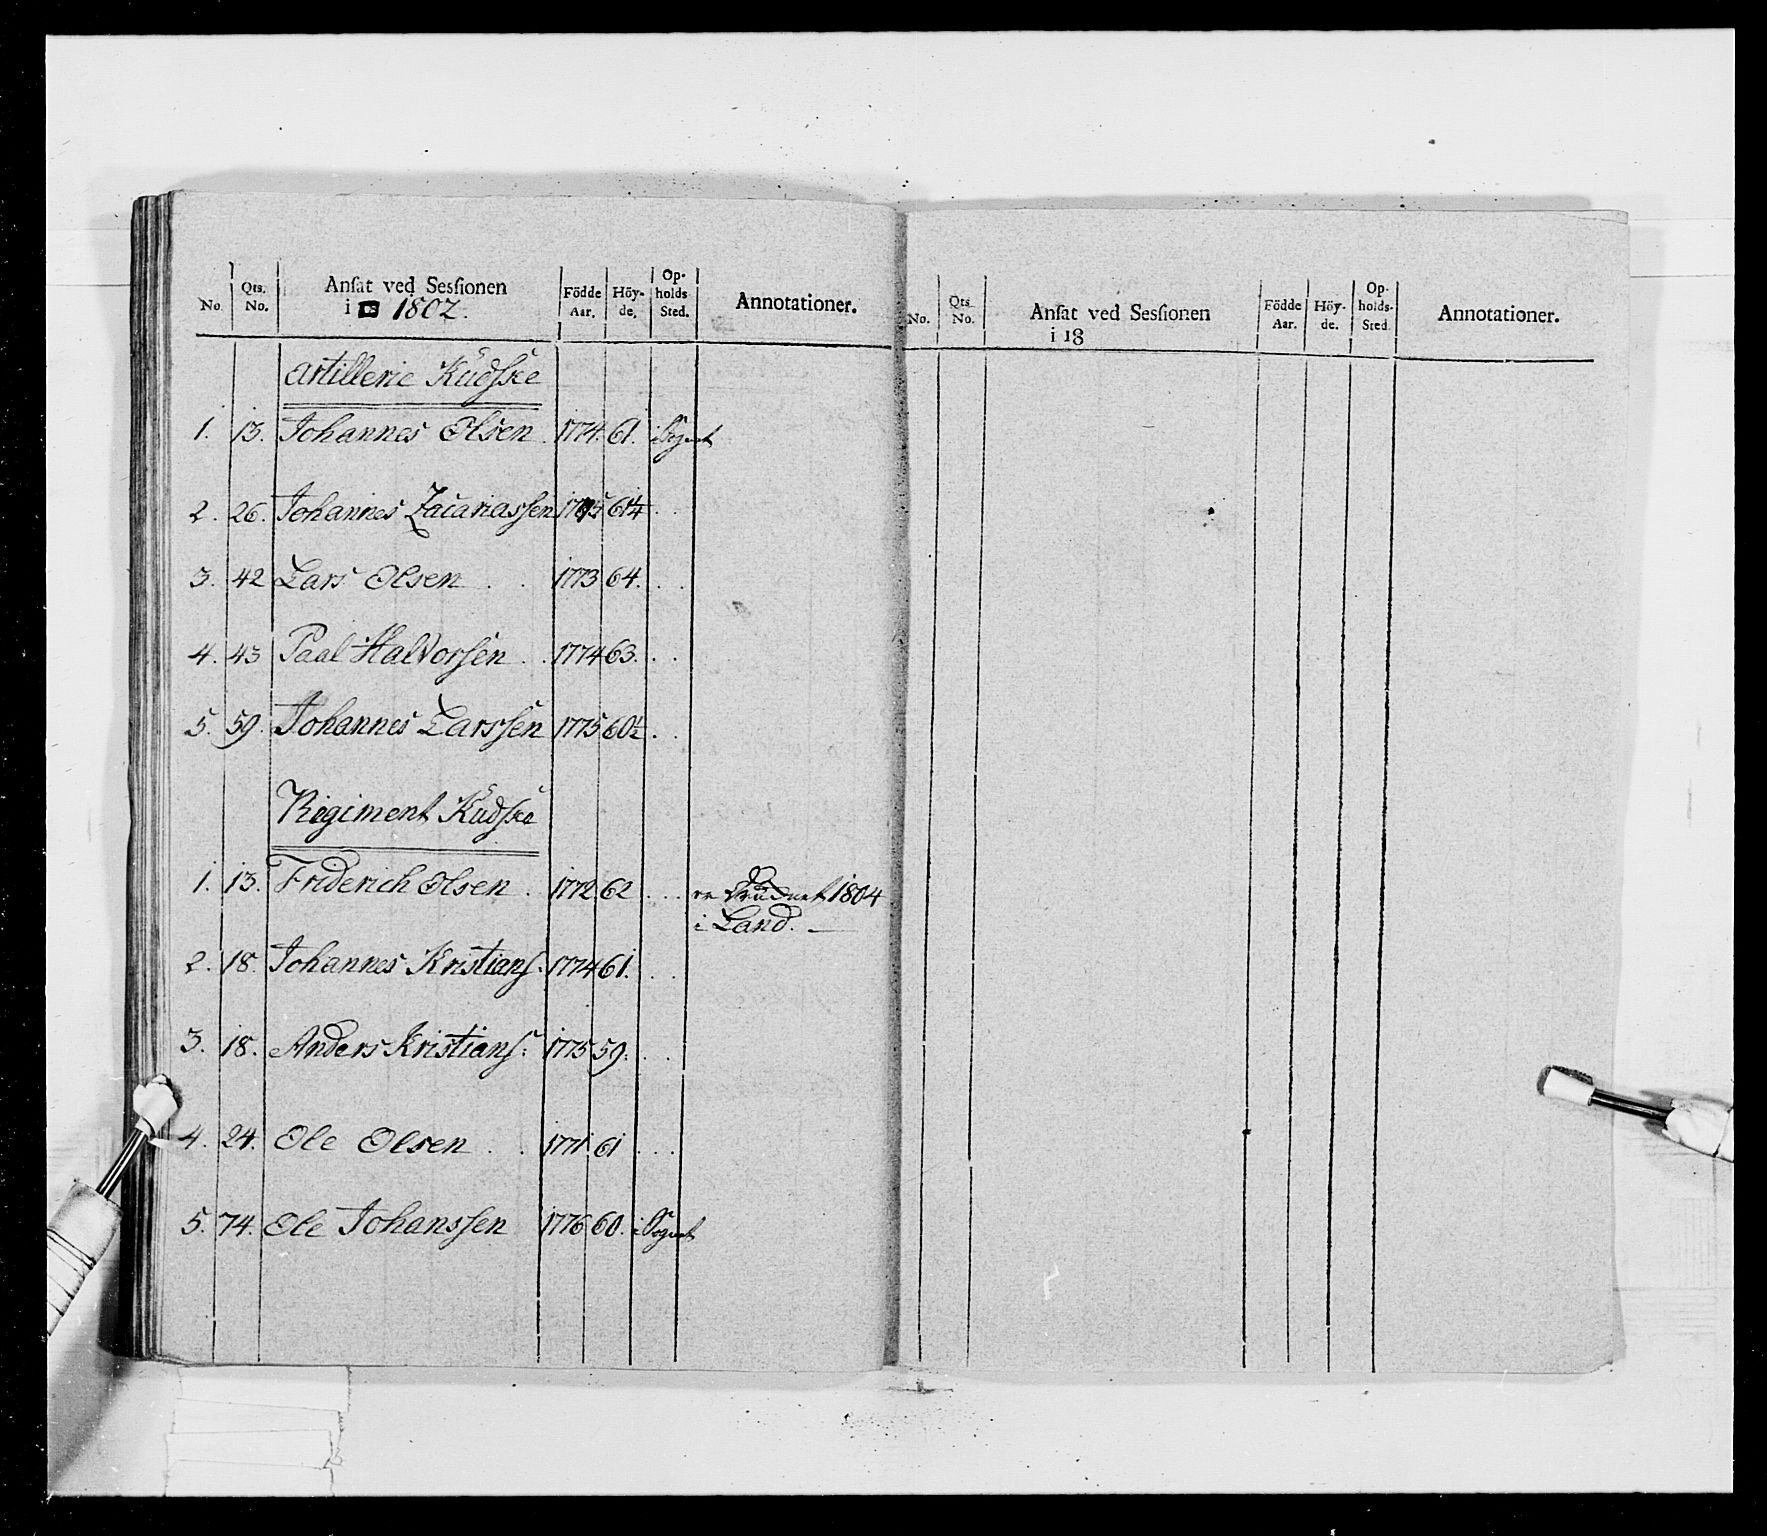 No. Qts. No. Ansat ved Sessionen i 1802. Födde Aar. Höyde. Opholds Sted. Annotationer.
Artillerie Kudske
1. 13. Johannes Olsen. 1774. 61. i Sognet
2. 26. Johannes Zacariassen 1775 61¼ . .
3. 42 Lars Olsen . . 1773 64. . .
4. 43 Paal Halvorsen . . 1774 63. . .
5. 59. Johannes Larssen 1775 60½ . .
Regiment Kudske
1. 13. Friderich Olsen . 1772. 62 . . . er 1804
i Land. —
2. 18. Johannes Kristians: 1774 61. . .
3. 18. Anders Kristians: 1775 59. . .
4. 24. Ole Olsen . . 1771. 61 . . .
5. 74. Ole Johanssen 1776 60. i Sognet
No. Qts. No. Ansat ved Sessionen i 18 Födde Aar. Höyde. Opholds-Sted. Annotationer.